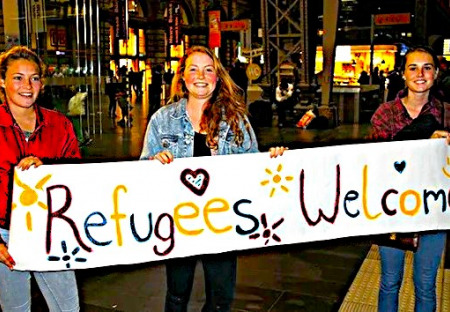 Refugees Welcom